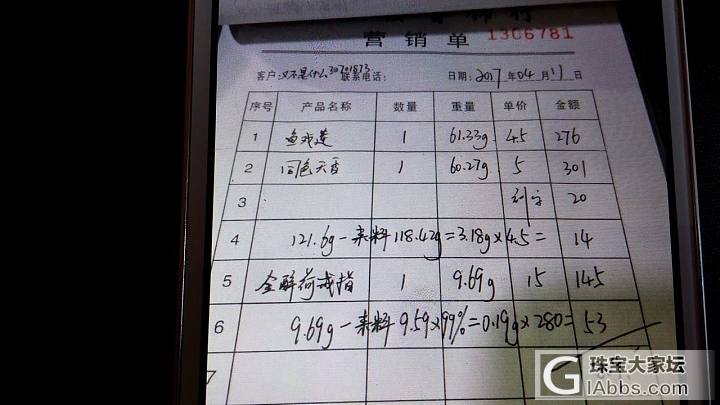 营销单 1306781
客户:又不是什么30701873 联系电话: 日期:2017年04月11日
序号 产品名称 数量 重量 单价 金额
1 鱼戏莲 1 61.33g 4.5 276
2 国色天香 1 60.27g 5 301
3 刻字 20
4 121.6g-来料118.42g=3.18g×4.5= 14
5 金醉荷戒指 1 9.69g 15 145
6 9.69g-来料9.59×99%=0.19g×280= 53
7
G 珠宝大家坛
IAbbs.com